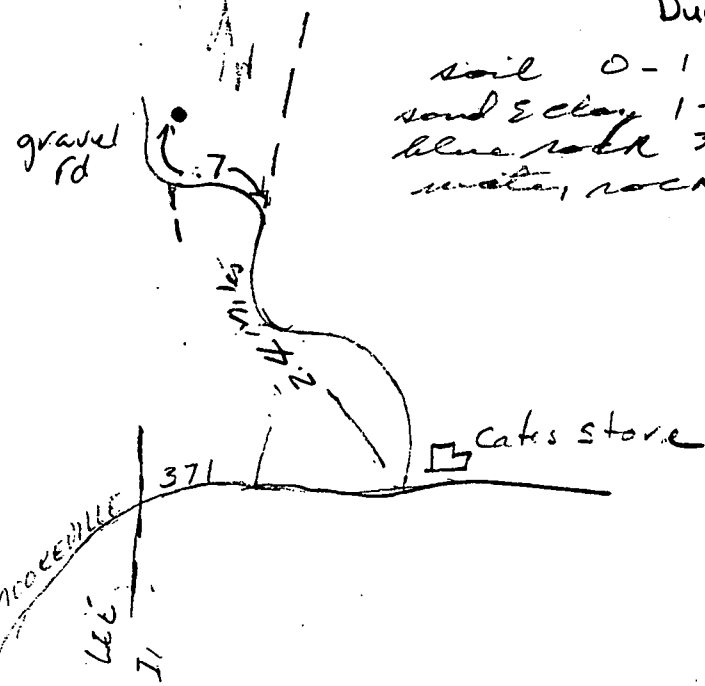 Du
N
soil 0-1
sand & clay 1-
blue rock 3
rock
gravel
rd
.7
2.4 miles
Cates Store
371
MOOREVILLE
LEE